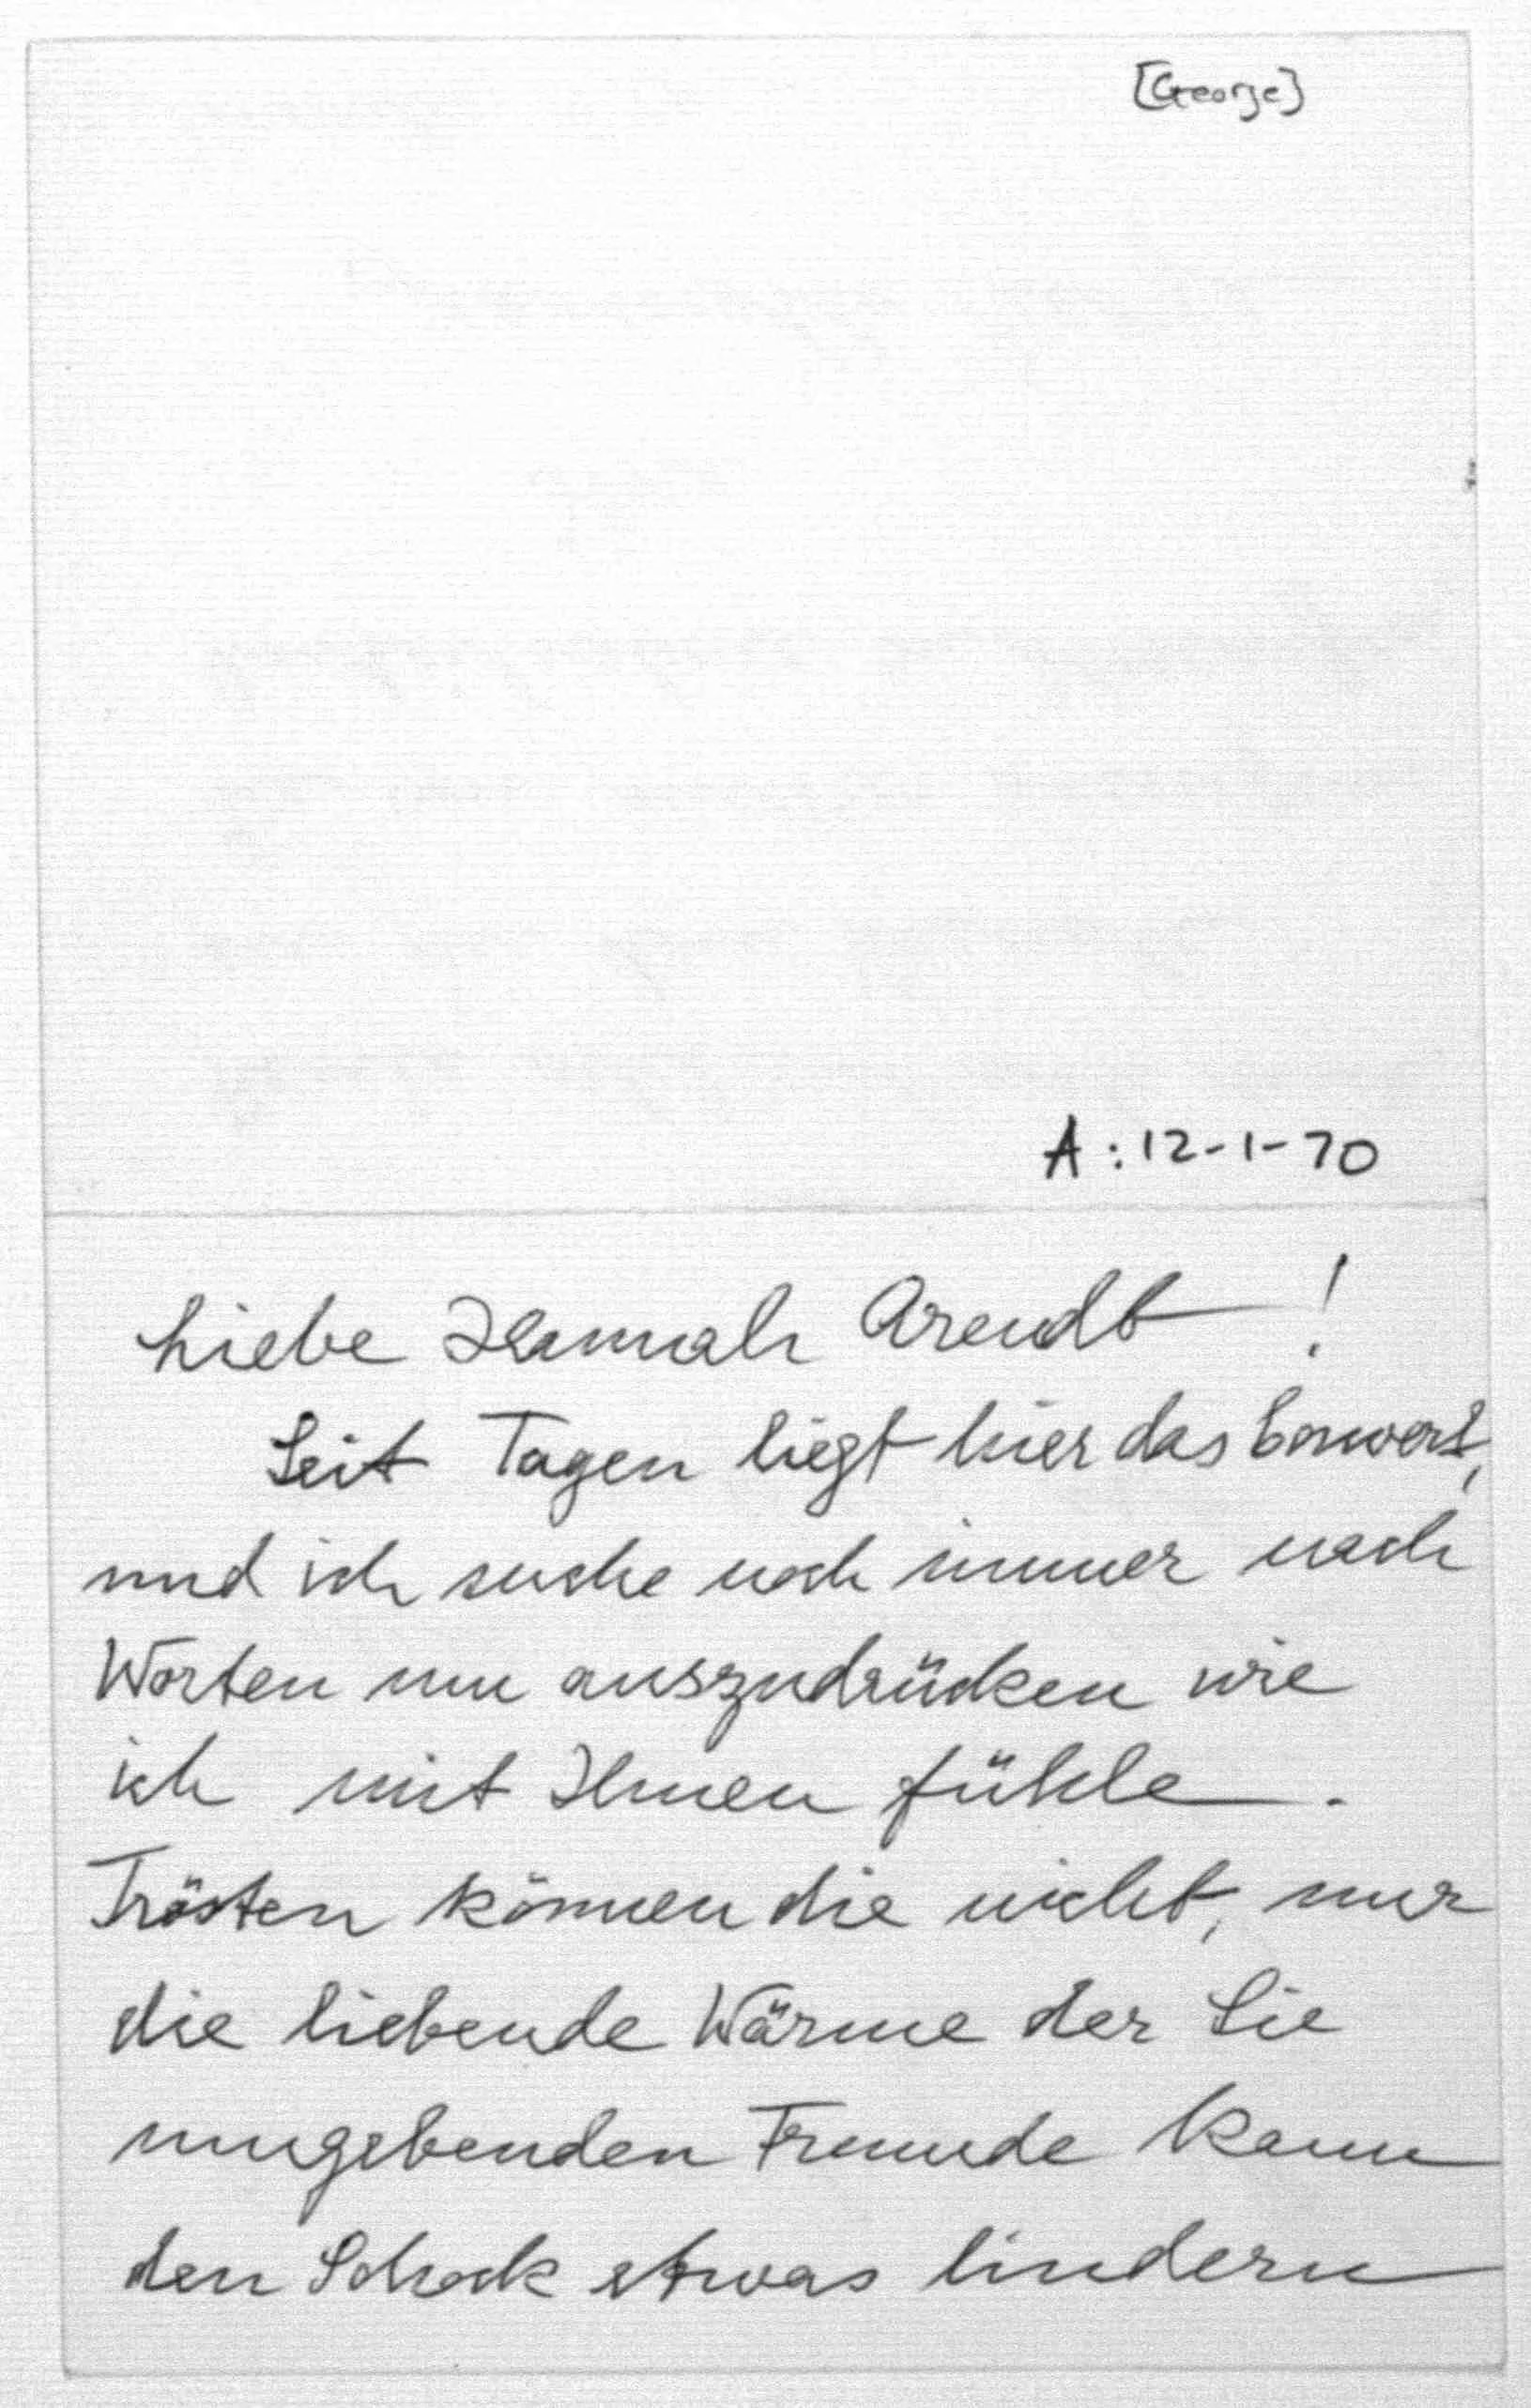 [George]
A: 12-1-70
Liebe Hannah Arendt!
Seit Tagen liegt hier das Couvert,
und ich suche noch immer nach
Worten um auszudrücken wie
ich mit Ihnen fühle.
Trösten können die nicht, nur
die liebende Wärme der Sie
umgebenden Freunde kann
den Schock etwas lindern